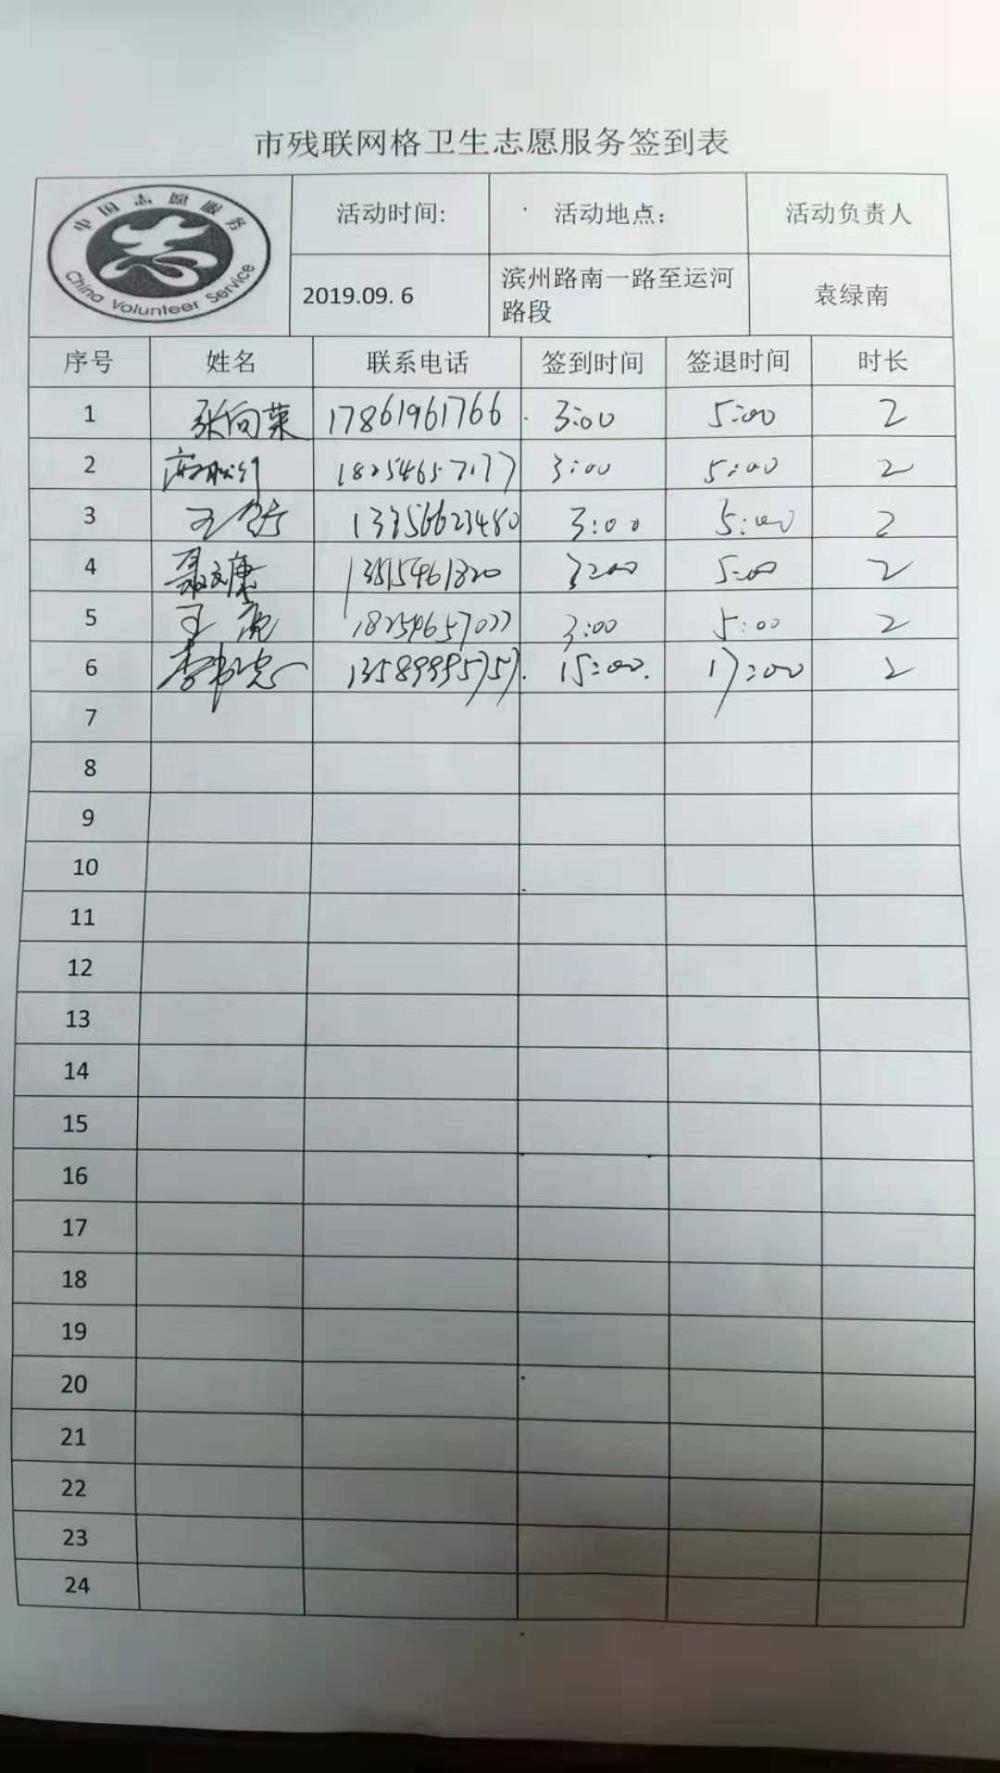 市残联网格卫生志愿服务签到表
中国志愿服务
China Volunteer Service
活动时间: 活动地点: 活动负责人
2019.09.6 滨州路南一路至运河路段 袁绿南
序号 姓名 联系电话 签到时间 签退时间 时长
1 张向荣 17861961766 3:00 5:00 2
2 18254657177 3:00 5:00 2
3 3:00 5:00 2
4 3:00 5:00 2
5 王 18254657077 3:00 5:00 2
6 15:00. 17:00 2
7
8
9
10
11
12
13
14
15
16
17
18
19
20
21
22
23
24